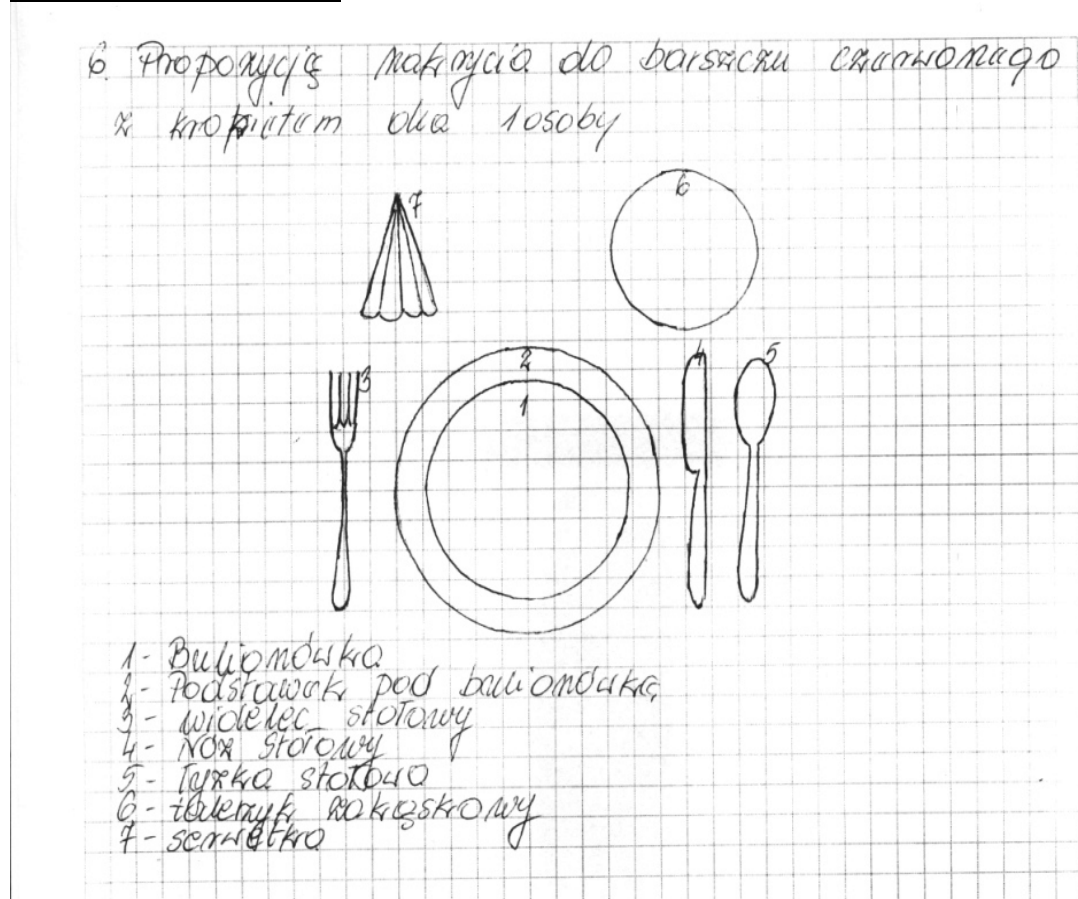 6. Propozycję nakrycia do barszczu czerwonego
z krokietem dla 1 osoby
7
6
3
2
1
4
5
1- Bulionówka
2- Podstawek pod bulionówkę
3- widelec stołowy
4- Nóż stołowy
5- Łyżka stołowa
6- talerzyk zakąskowy
7- serwetka